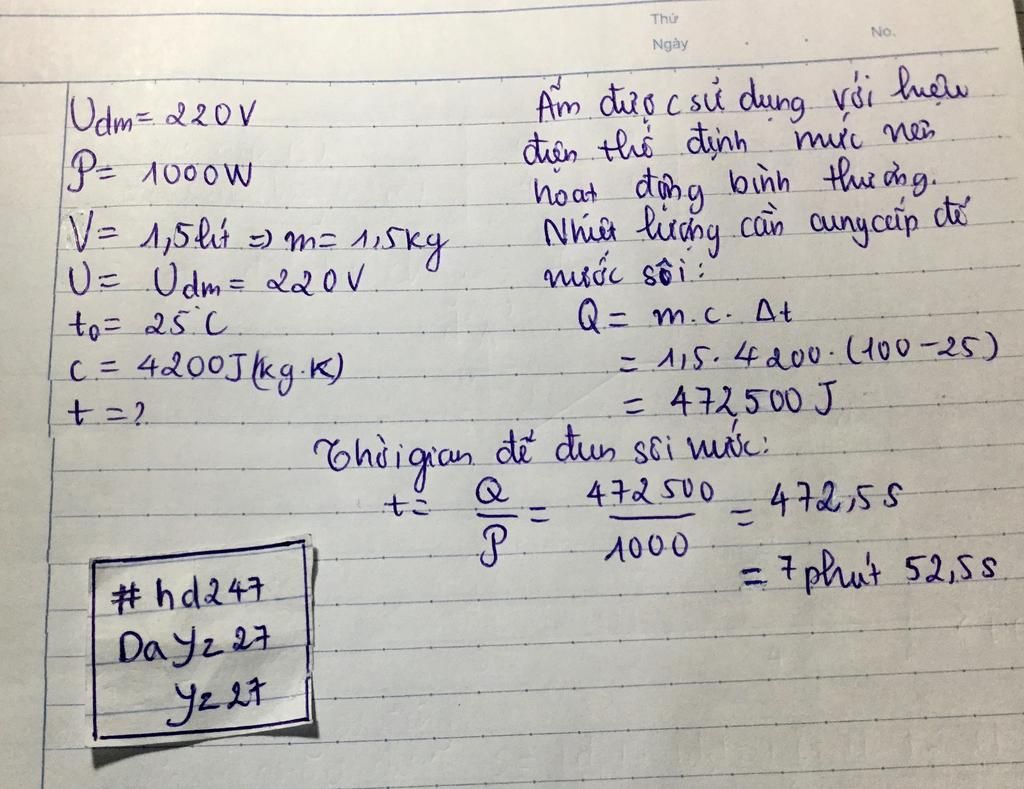 Thứ
Ngày
No.
Uđm = 220V
P = 1000W
V = 1,5 lít => m = 1,5kg
U = Uđm = 220V
t₀ = 25°C
c = 4200J(kg.K)
t = ?
Ấm được sử dụng với hiệu
điện thế định mức nên
hoạt động bình thường.
Nhiệt lượng cần cung cấp để
nước sôi:
Q = m.c.Δt
= 1,5.4200.(100-25)
= 472500 J
Thời gian để đun sôi nước:
t = Q/P = 472500/1000 = 472,5s
= 7 phút 52,5s
#hd247
DaYz27
Yz27